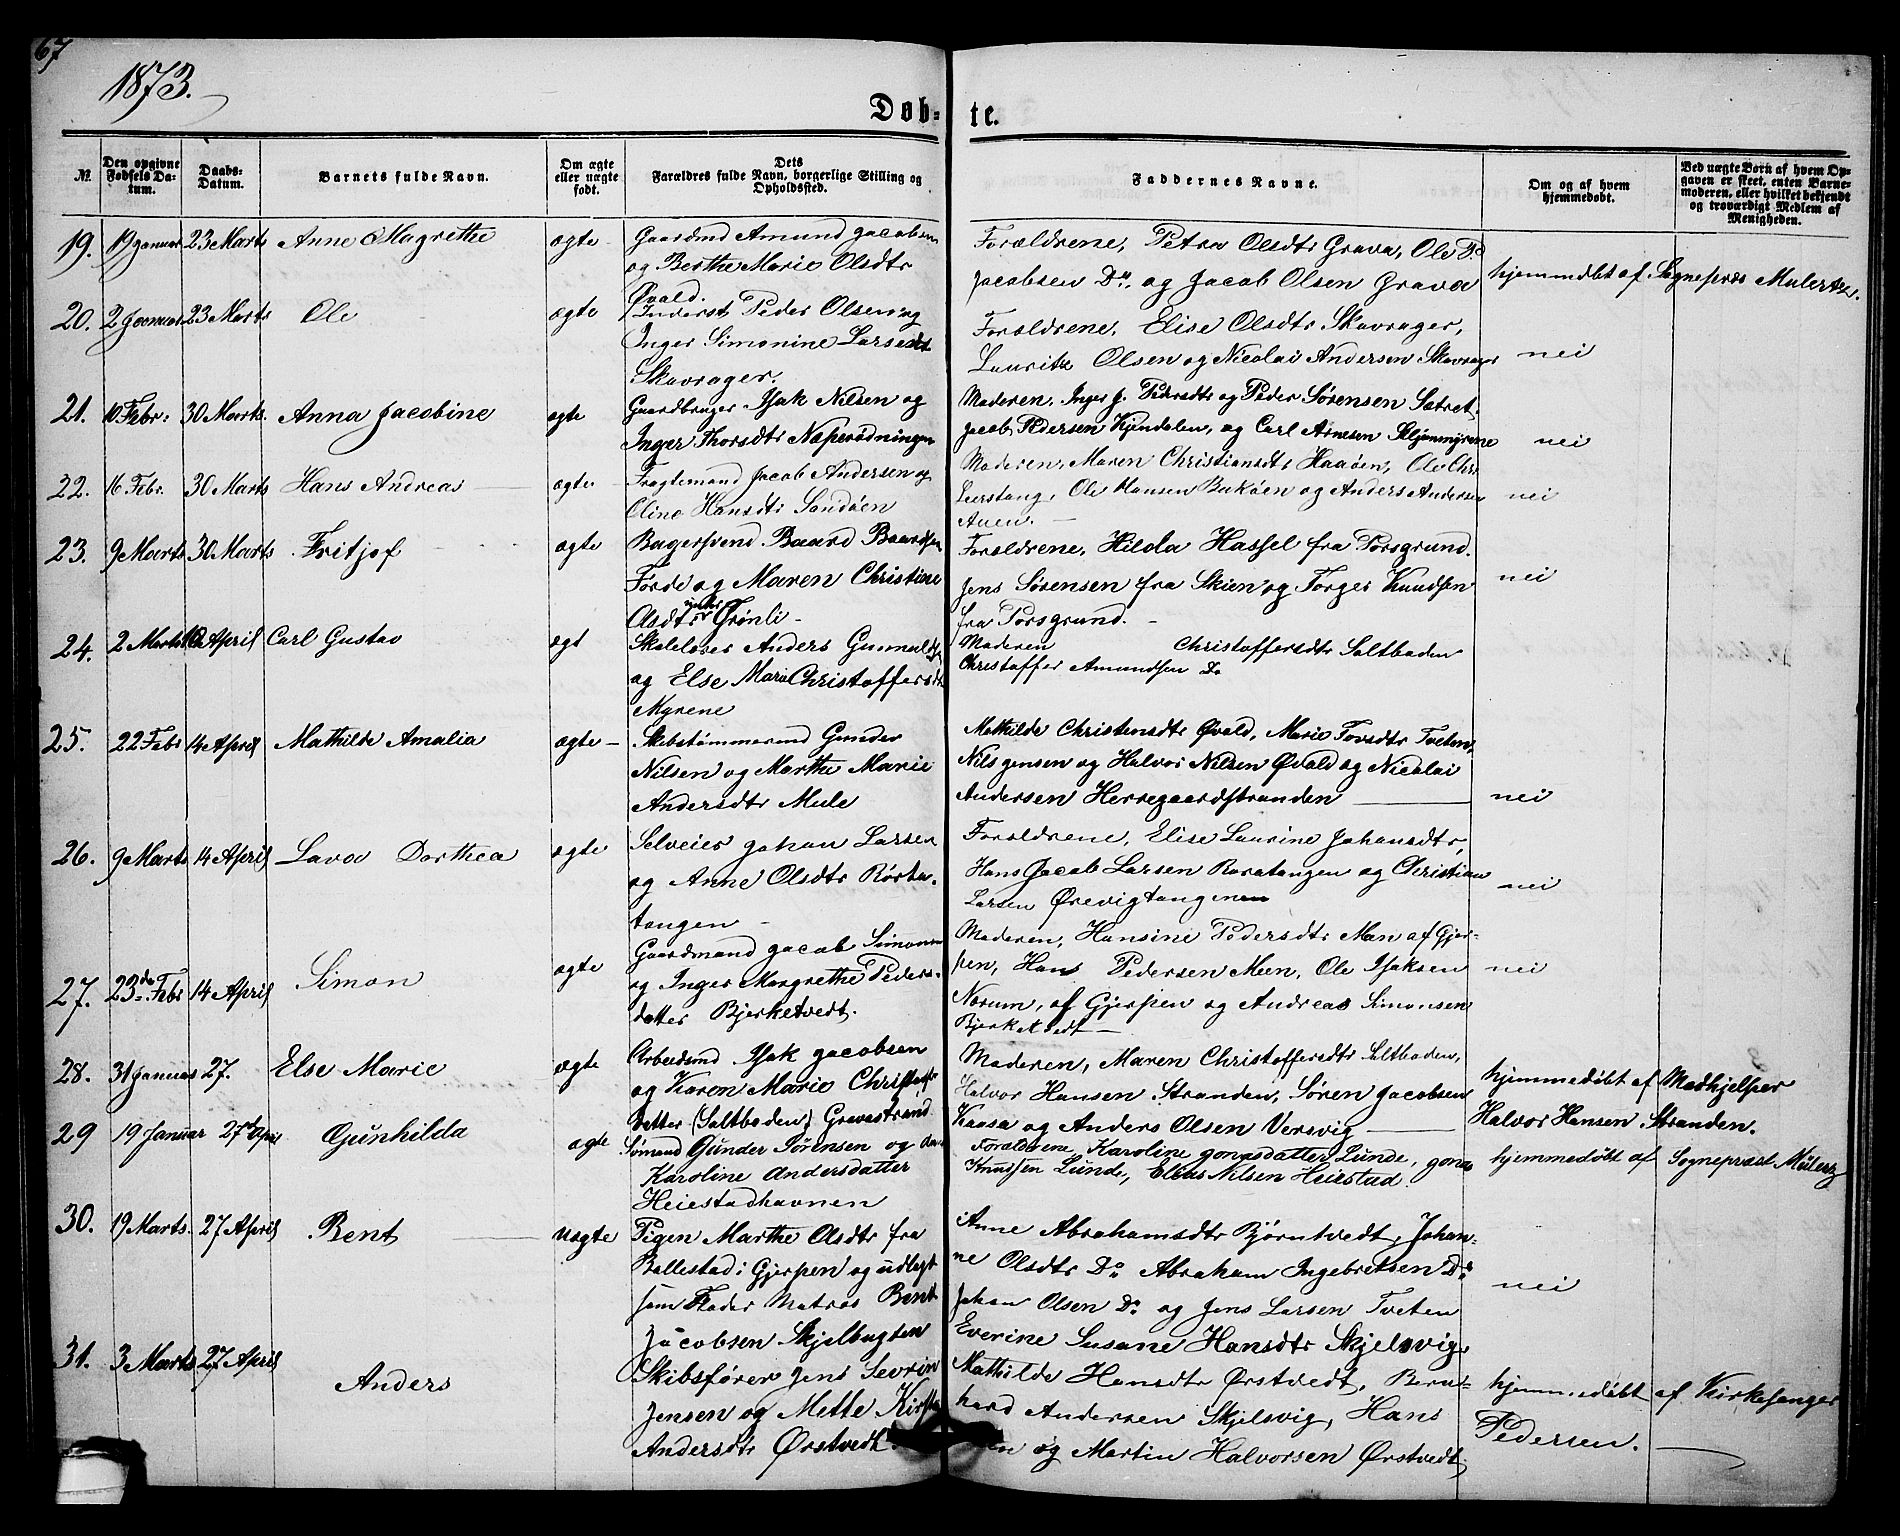 67
1873.
Døb- te.
№.
Den opgivne Fødsels Datum.
Daabs-Datum.
Barnets fulde Navn.
Om ægte eller uægte født.
Dets Forældres fulde Navn, borgerlige Stilling og Opholdssted.
Faddernes Navne.
Om og af hvem hjemmedøbt.
Ved uægte Børn af hvem Opgaven er skeet, enten Barnemoderen, eller hvilket bekjendt og troværdigt Medlem af Menigheden.
19. 19 Januar 23 Marts Anne Magrethe ægte
Gaardmd Amund Jacobsen
og Berthe Marie Olsdtr
Øvald.
Forældrene, Petra Olsdtr Grava, Ole
Jacobsen Do. og Jacob Olsen Grava
hjemmedøbt af Sognepræs Mulertz.
20. 2 Januar 23 Marts Ole ægte
Inderst Peder Olsen og
Inger Simonine Larsdtr
Skavrager.
Forældrene, Elise Olsdtr Skavrager,
Lauritz Olsen og Nicolai Andersen Skavrager
nei
21. 10 Febr: 30 Marts. Anna Jacobine ægte
Gaardbruger Isak Nilsen og
Inger Thorsdtr Næsrødningen
Moderen, Inger J. Pedersdtr og Peder Sørensen Sætret.
Jacob Pedersen Kjendalen, og Carl Arnesen
nei
22. 16 Febr. 30 Marts Hans Andreas ægte
Fragtemand Jacob Andersen og
Oline Hansdtr Sandøen
Moderen, Maren Christiansdtr Haaøen, Ole Chr.
Leerstang, Ole Hansen Bukøen og Anders Andersen
Auen.
nei
23. 9 Marts 30 Marts Fritjof ægte
Bagersvend Baard Baardsen
Førde og Maren Christine
Olsdtr Grønli
Forældrene, Hilda Hassel fra Porsgrund.
Jens Sørensen fra Skien og Torger Knudsen
fra Porsgrund.
nei
24. 2 Marts April Carl Gustav ægt
Skolelærer Anders
og Else Marie Christoffersdtr
Myrene
Moderen Christoffersdtr Saltboden
Christoffer Amundsen Do
25. 22 Febr 14 April Mathilde Amalia ægte
Skibstømmermd Gunder
Nilsen og Marthe Marie
Andersdtr Mule
Mathilde Christensdtr Øvald, Marie Torsdtr Tveten,
Nils Jensen og Halvor Nilsen Øvald og Nicolai
Andersen Herregaardstranden
nei
26. 9 Marts 14 April Lava Dorthea ægte
Selveier Johan Larsen
og Anne Olsdtr Rørha-
tangen
Forældrene, Elise Laurine Johansdtr,
Hans Jacob Larsen Raratangen og Christian
Larsen Ørevigtangen
nei
27. 23de Febr 14 April Simon ægte
Gaardmand Jacob Simonsen
og Inger Margrethe Peders-
datter Bjerketvedt.
Moderen, Hansine Pedersdtr Mæn af Gjer-
pen, Hans Pedersen Meen, Ole Isaksen
Norum, af Gjerpen og Andreas Simonsen
Bjerketvedt
nei
28. 31 Januar 27. Else Marie ægte
Arbeidsmd Isak Jacobsen
og Karen Marie Christoffers
datter (Saltboden) Gravastrand
Moderen, Maren Christoffersdtr Saltboden,
Halvor Hansen Stranden, Søren Jacobsen
Kaasa og Anders Olsen Versvig
hjemmedøbt af Madhjelper
Halvor Hansen Stranden.
29 19 Januar 27de April Gunhilda ægte
Sømand Gunder Sørensen og
Karoline Andersdatter
Heiestadhavnen
Forældrene, Karoline Jonasdatter Lunde, Jonas
Knudsen Lunde, Elias Nilsen Heiestad.
hjemmedøbt af Sognepræst Mülertz
30. 19 Marts. 27 April Bent uægte
Pigen Marthe Olsdtr fra
Ballestad i Gjerpen og udlagt
som Fader Matros Bent
Jacobsen Skjelbugten
Anne Abrahamsdtr Bjørntvedt, Johan-
ne Olsdtr Do. Abraham Ingebretsen Do.
Johan Olsen Do. og Jens Larsen Tveten
nei
31. 3 Marts 27 April Anders
Skibsfører Jens Sevrin
Jensen og Mette Kirst
Andersdtr Ørstvedt
Everine Susane Hansdtr Skjelsvig,
Mathilde Hansdtr Ørstvedt, Bern-
hard Andersen Skjelsvig, Hans
og Martin Halvorsen Ørstvedt,
hjemmedøbt af Kirkesanger
Pedersen.